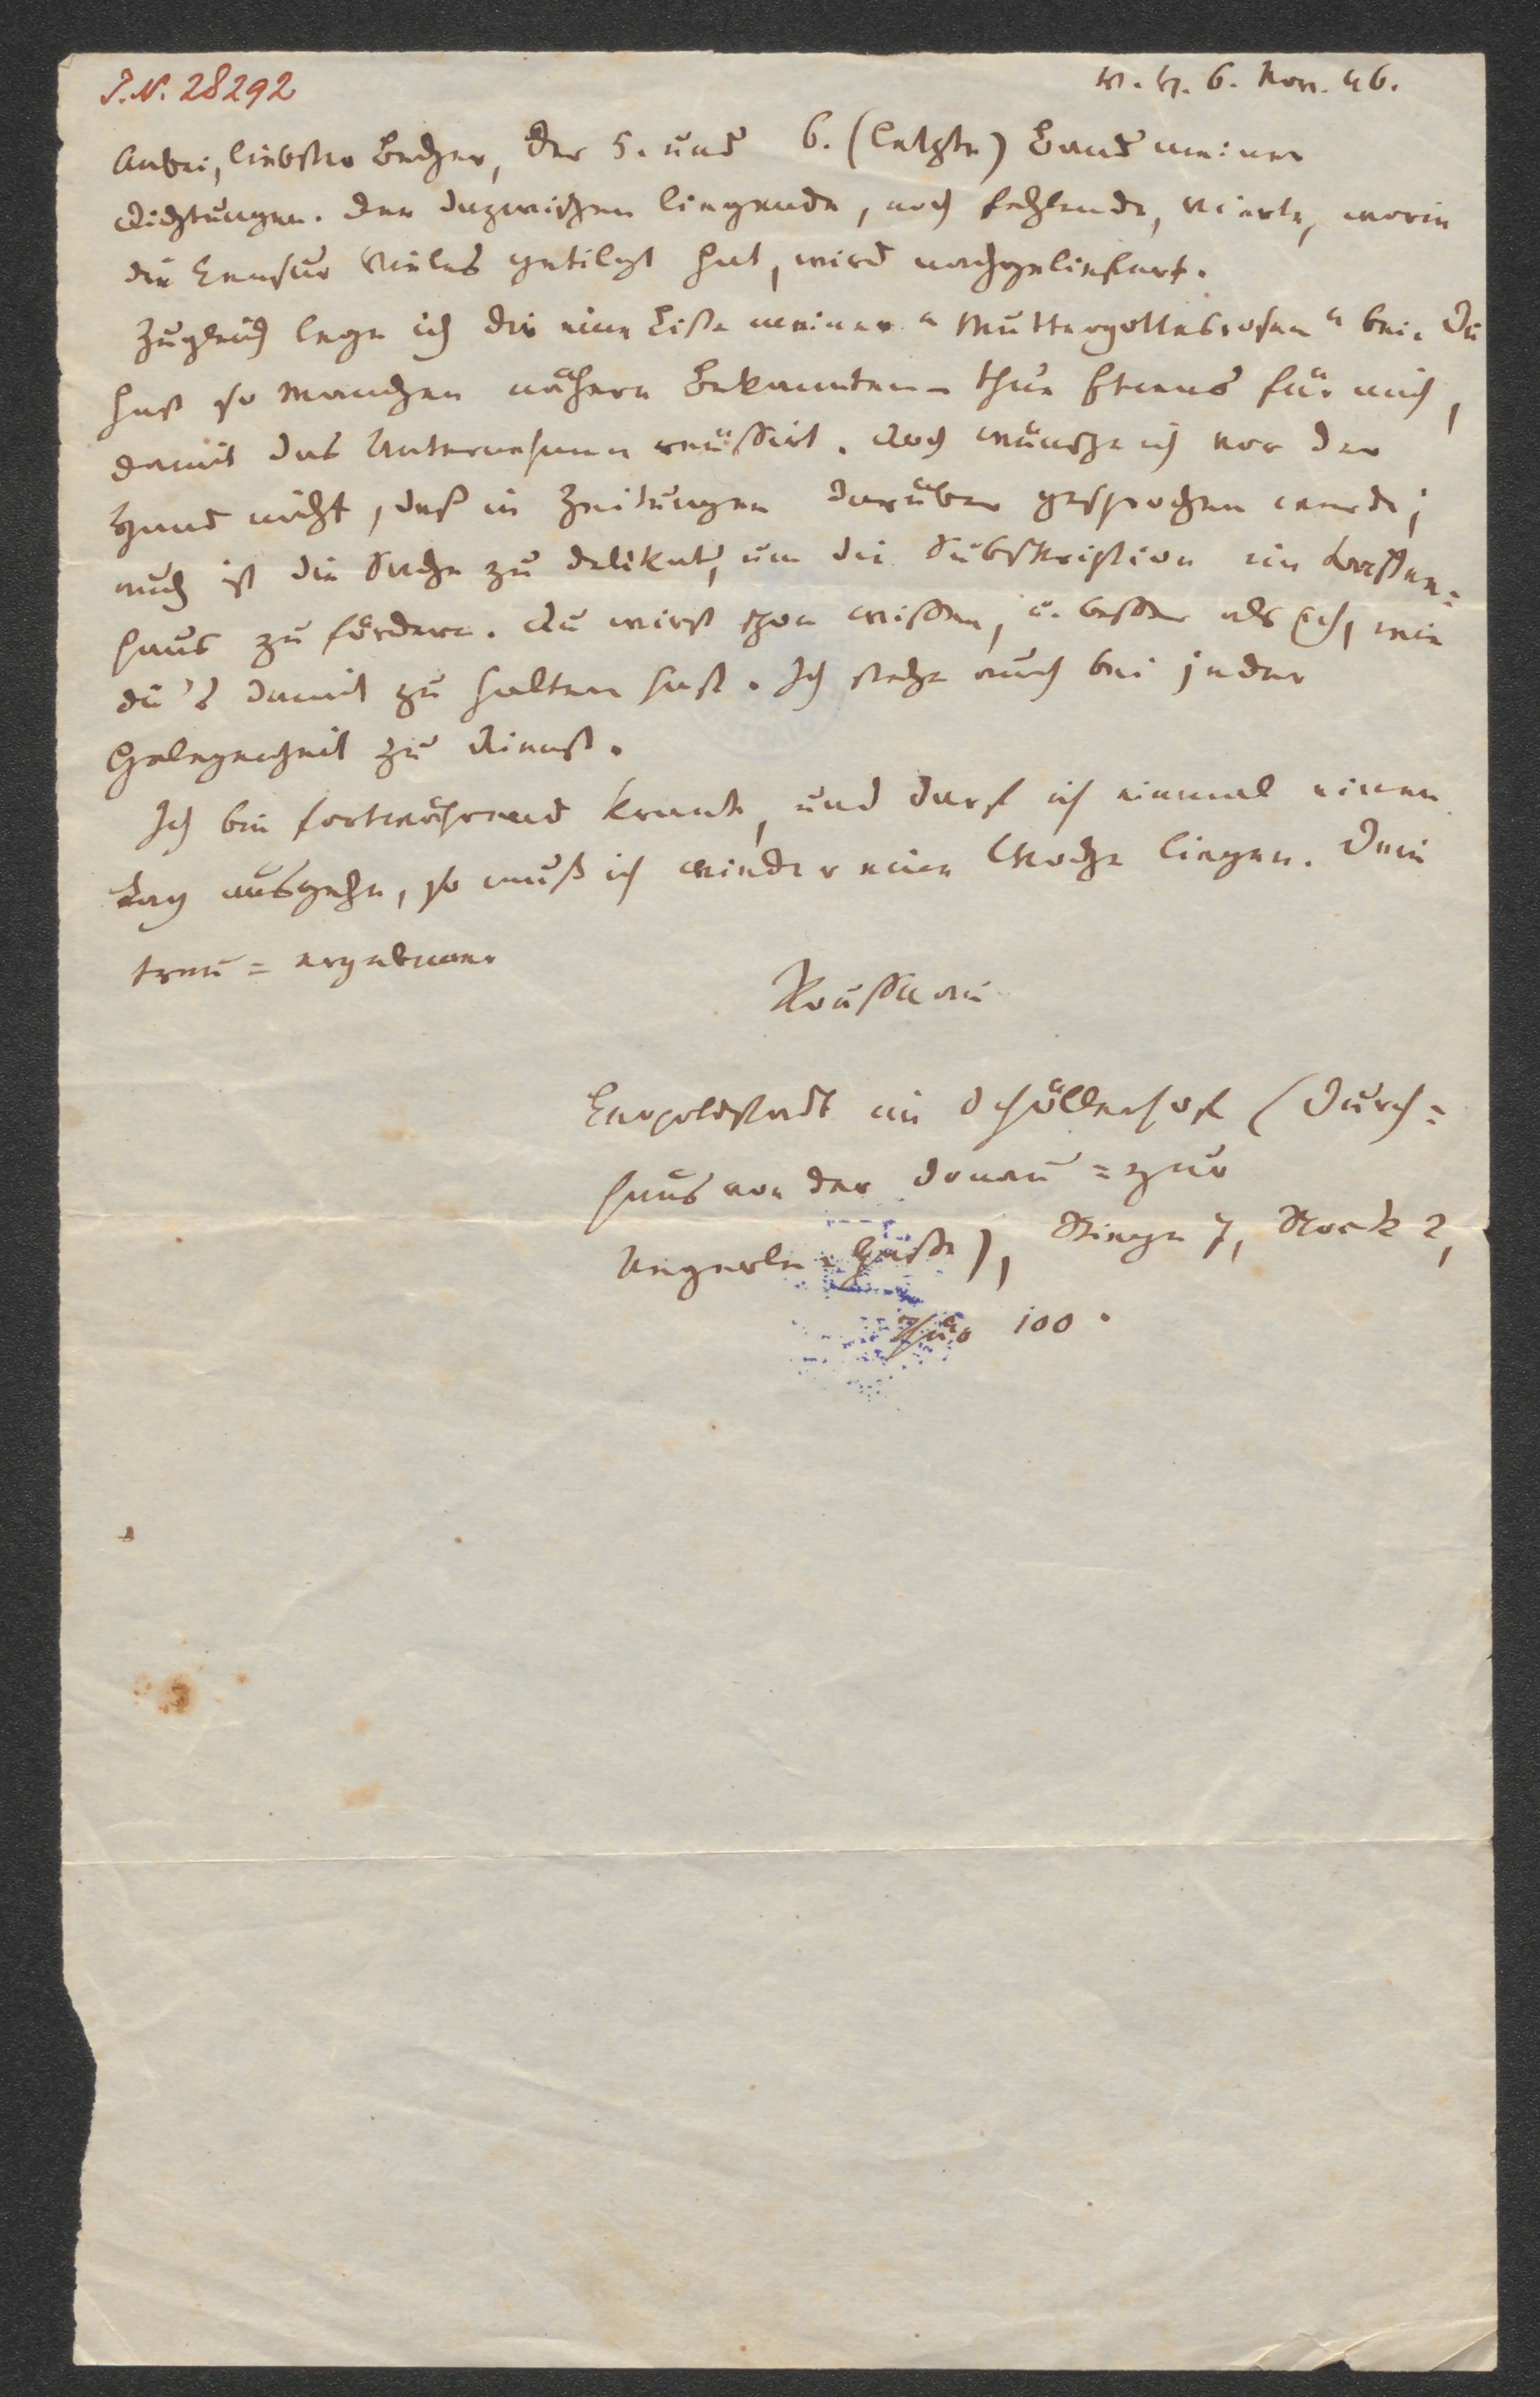 I.N. 28292
W. H. 6. Nov. 46.
Anbei, liebster Becher, der 5. und 6. (letzte) Band meiner
Dichtungen. Der dazwischen liegende, noch fehlende, vierte, worin
die Censur Vieles getilgt hat, wird nachgeliefert.
Zugleich lege ich dir eine Liste meiner "Muttergottesrosen" bei. Du
hast so manchen nähern Bekannten – thue Etwas für mich,
damit das Unternehmen reüssirt. Doch wünsche ich vor der
Hand nicht, daß in Zeitungen darüber gesprochen werde;
auch ist die Sache zu delikat, um die Subskription im
haus zu fördern. Du wirst schon wissen, u. besser als ich, wie
du's damit zu halten hast. Ich stehe auch bei jeder
Gelegenheit zu Dienst.
Ich bin fortwährend krank, und darf ich einmal einen
Tag ausgehn, so muß ich wieder eine Woche liegen. Dein
treu=ergebener
Rousseau
Leopoldstadt im Schöllerhof (Durch=
haus von der Donau=zur
Ankerln=Gasse), Stiege 7, Stock 2,
Thür 100.